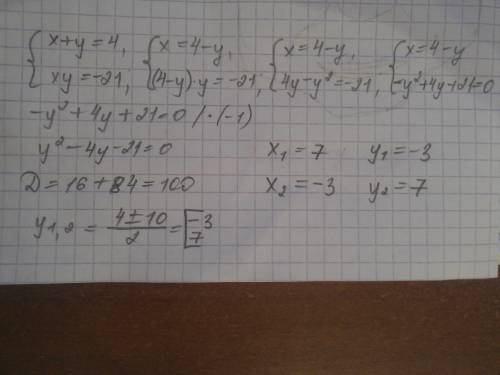 {x+y=4, {x=4-y, {x=4-y, {x=4-y
{xy=-21, {(4-y)·y=-21, {4y-y²=-21, {-y²+4y+21=0
-y²+4y+21=0 /·(-1)
y²-4y-21=0 x₁=7 y₁=-3
D=16+84=100 x₂=-3 y₂=7
y₁,₂ = (4±10)/2 = [-3
7